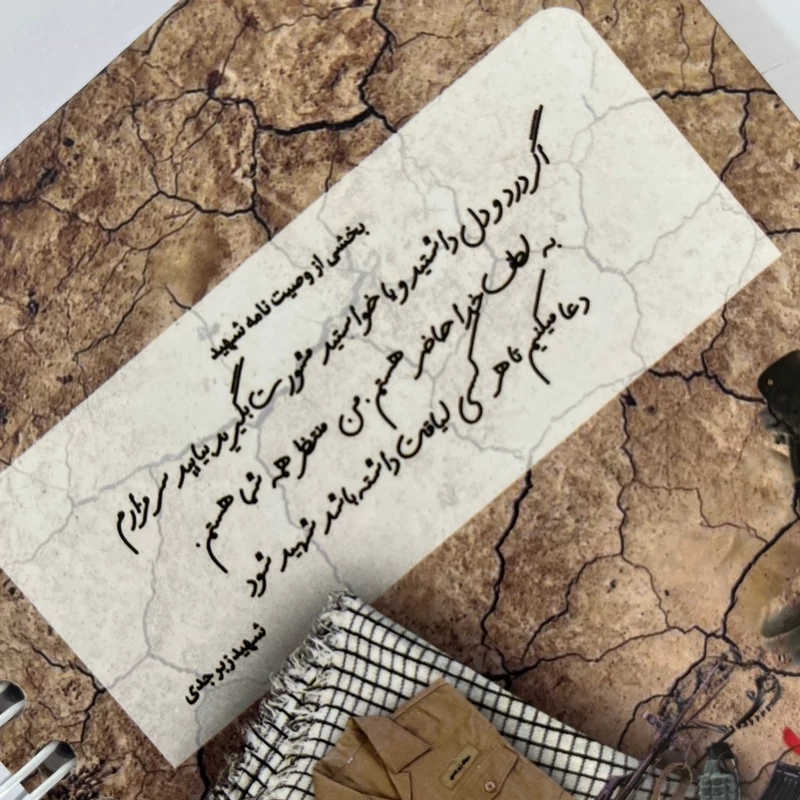 بخشی از وصیت نامه شهید
اگر درد و دل داشتید و یا خواستید مشورت بگیرید بیایید سر مزارم
به لطف خدا حاضر هستم. من منتظر همه شما هستم.
دعا میکنیم تا هر کسی لیاقت داشته باشد شهید شود
شهید زبرجدی